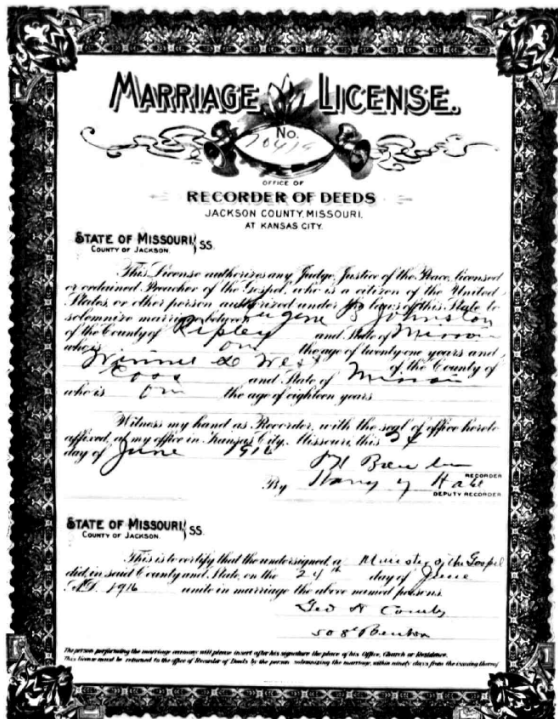 MARRIAGE LICENSE.
No.
OFFICE OF
RECORDER OF DEEDS
JACKSON COUNTY, MISSOURI.
AT KANSAS CITY.
STATE OF MISSOURI, SS.
COUNTY OF JACKSON
This License authorizes any Judge, Justice of the Peace, licensed
or ordained Preacher of the Gospel, who is a citizen of the United
States, or other person authorized under the laws of this State to
solemnize marriage between Eugene S Johnston
of the County of Ripley and State of Missouri
who is over the age of twenty one years and
of the County of
and State of Missouri
who is over the age of eighteen years
Witness my hand as Recorder, with the seal of office hereto
affixed, at my office in Kansas City, Missouri, this
day of June 1916
RECORDER
By Harry
DEPUTY RECORDER
STATE OF MISSOURI, SS.
COUNTY OF JACKSON
This is to certify that the undersigned, a Minister of the Gospel
did, in said County and State, on the 24th day of June
A.D. 1916 unite in marriage the above named persons.
Geo
508 Benton
The person performing the marriage ceremony will please insert after his signature the place of his Office, Church or Residence.
This license must be returned to the office of Recorder of Deeds by the person solemnizing the marriage, within ninety days from the issuing thereof